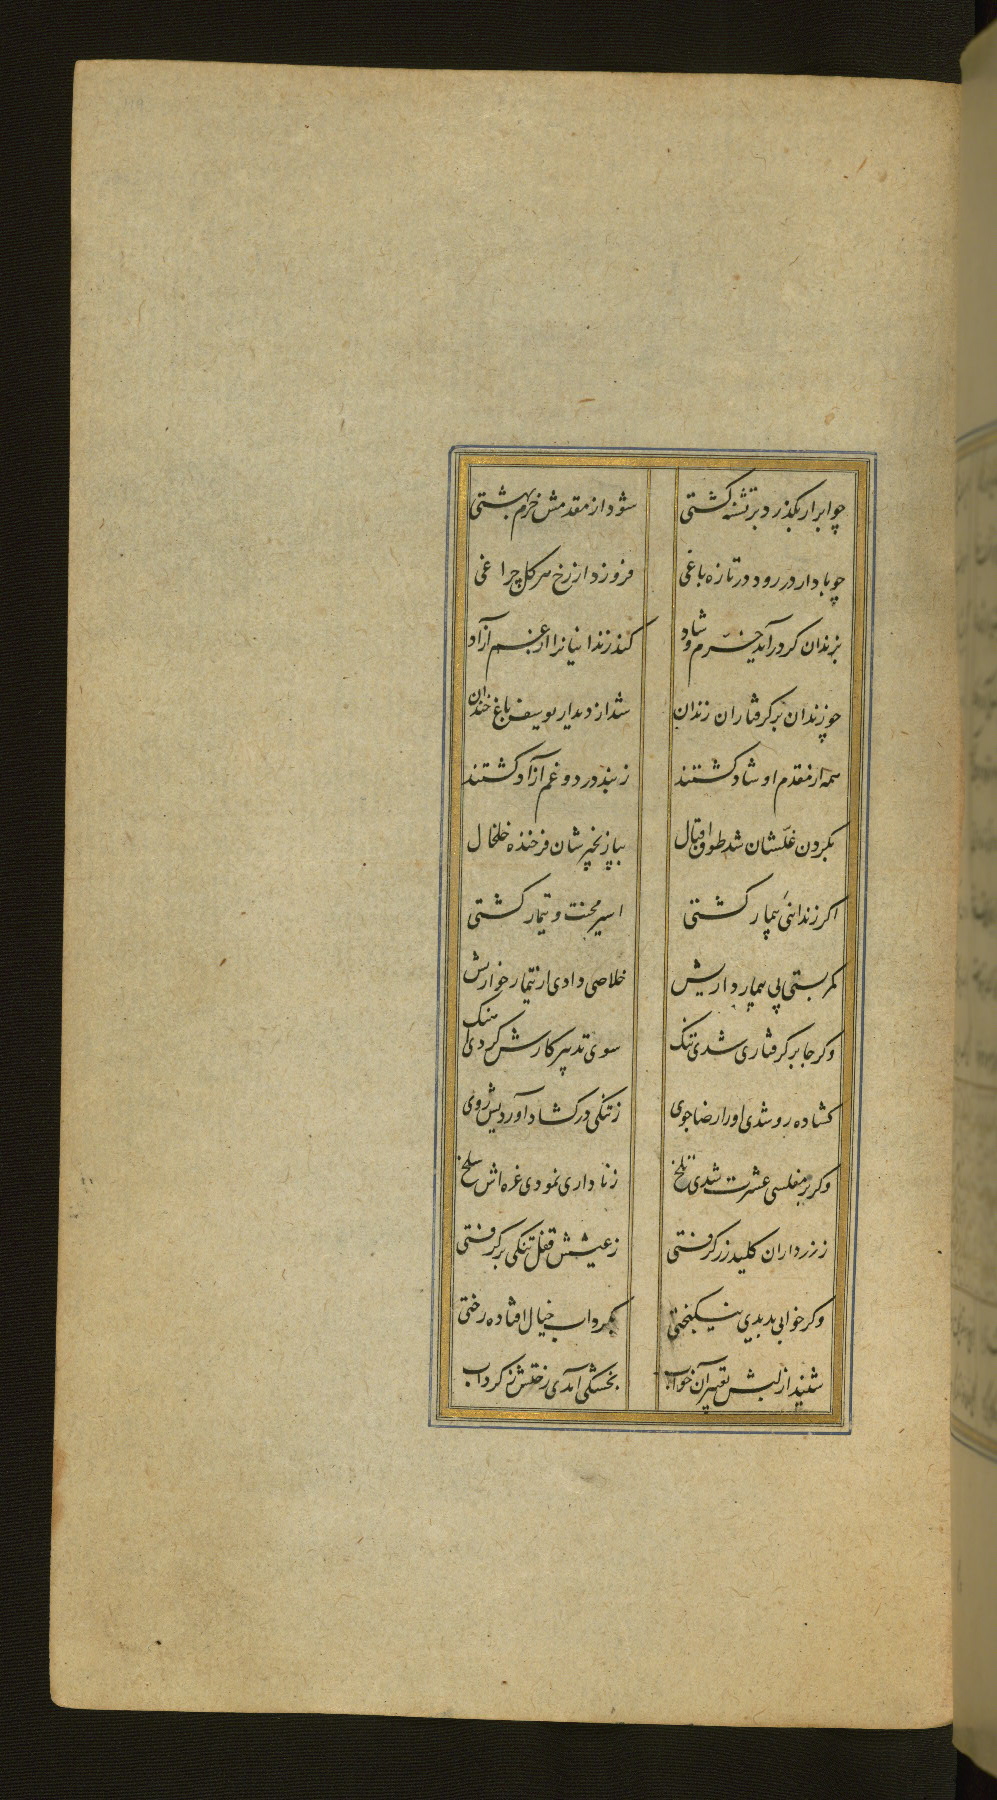 چو ابر ار بگذرد بر تشنه کشتی شود از مقدمش خرم بهشتی
چو باد ار در رود در تازه باغی فروزد از رخ هر گل چراغی
بزندان گر درآید خرّم و شاد کند زندانیانرا از غم آزاد
چو زندان بر گرفتاران زندان شد از دیدار یوسف باغ خندان
همه از مقدم او شاد گشتند ز بند درد و غم آزاد گشتند
بگردن غلّشان شد طوق اقبال بپا زنجیرشان فرخنده خلخال
اگر زندانئی بیمار گشتی اسیر محنت و تیمار گشتی
کمر بستی پی بیمار داریش خلاصی دادی از تیمار خواریش
وگر جا بر گرفتاری شدی تنگ سوی تدبیر کارش کردی آهنگ
گشاده رو شدی او را رضا جوی ز تنگی در گشاد آوردیش روی
وگر بر مفلسی عشرت شدی تلخ ز ناداری نمودی غره اش سلخ
ز زرداران کلید زر گرفتی ز عیشش قفل تنگی برگرفتی
وگر خوابی بدیدی نیکبختی بگرداب خیال افتاده رختی
شنیدی از لبش تعبیر آن خواب بخشکی آمدی رختش ز گرداب